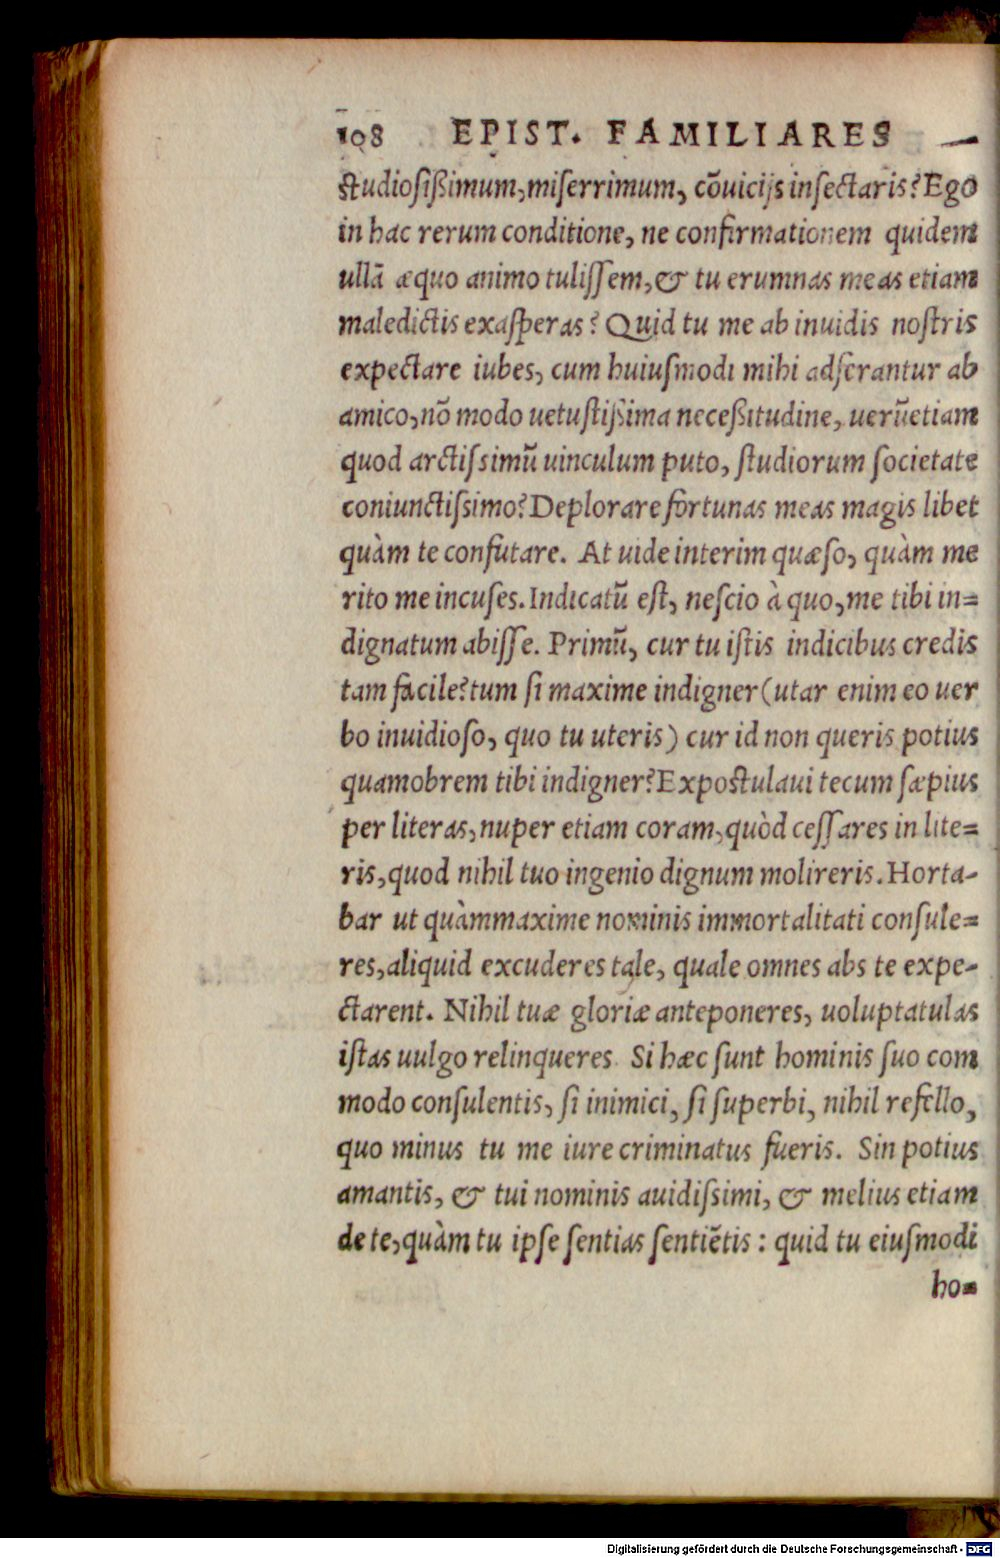 108 EPIST. FAMILIARES
ſtudioſißimum, miſerrimum, cõuicijs inſectaris? Ego
in hac rerum conditione, ne confirmationem quidem
ullã æquo animo tuliſſem, & tu erumnas meas etiam
maledictis exaſperas? Quid tu me ab inuidis noſtris
expectare iubes, cum huiuſmodi mihi adferantur ab
amico, nõ modo uetuſtißima neceßitudine, uerũetiam
quod arctiſsimũ uinculum puto, ſtudiorum ſocietate
coniunctiſsimo? Deplorare fortunas meas magis libet
quàm te confutare. At uide interim quæſo, quàm me
rito me incuſes. Indicatũ eſt, neſcio à quo, me tibi in=
dignatum abiſſe. Primũ, cur tu iſtis indicibus credis
tam facile? tum ſi maxime indigner (utar enim eo uer
bo inuidioſo, quo tu uteris) cur id non queris potius
quamobrem tibi indigner? Expoſtulaui tecum ſæpius
per literas, nuper etiam coram, quòd ceſſares in lite=
ris, quod nihil tuo ingenio dignum molireris. Horta-
bar ut quàmmaxime nominis immortalitati conſule=
res, aliquid excuderes tale, quale omnes abs te expe-
ctarent. Nihil tuæ gloriæ anteponeres, uoluptatulas
iſtas uulgo relinqueres. Si hæc ſunt hominis ſuo com
modo conſulentis, ſi inimici, ſi ſuperbi, nihil refello,
quo minus tu me iure criminatus fueris. Sin potius
amantis, & tui nominis auidiſsimi, & melius etiam
de te, quàm tu ipſe ſentias ſentiẽtis: quid tu eiuſmodi
ho=
Digitalisierung gefördert durch die Deutsche Forschungsgemeinschaft - DFG